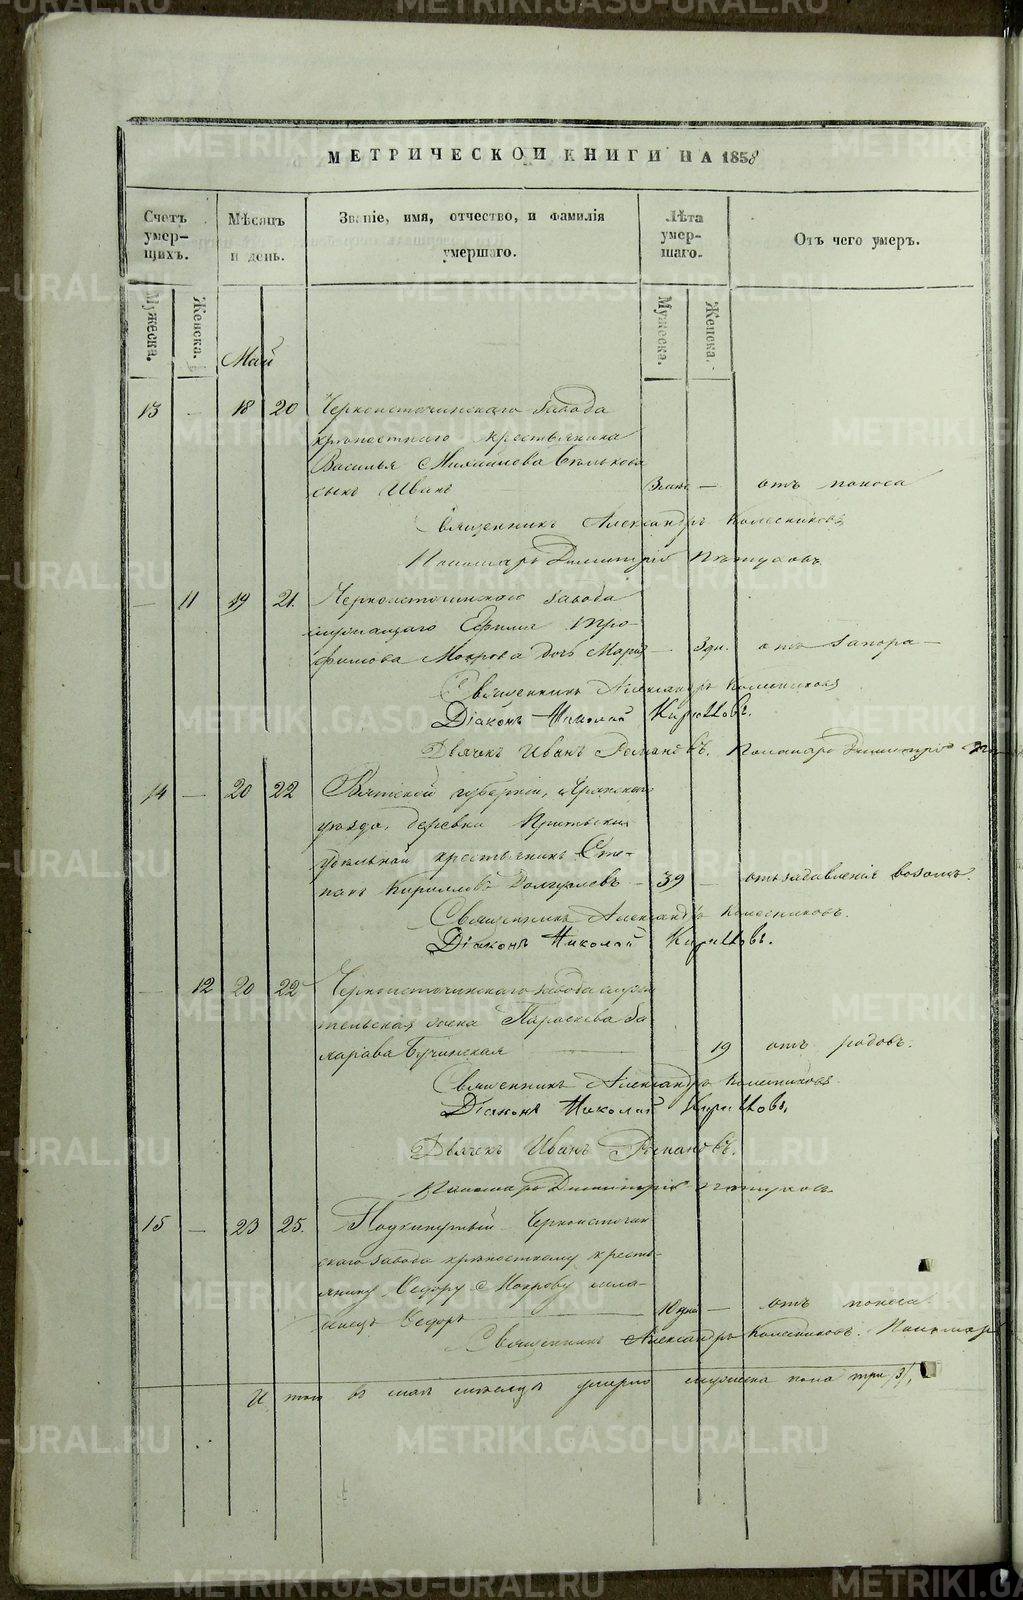 МЕТРИЧЕСКОЙ КНИГИ НА 1858
Счетъ умер-щихъ.
Мѣсяцъ и день.
Званіе, имя, отчество, и фамилія умершаго.
Лѣта умер-шаго.
Отъ чего умеръ.
Мужеска.
Женска.
Мужеска.
Женска.
Май
13 - 18 20 Черноисточинскаго завода
крѣпостнаго крестьянина
Василья
сынъ Иванъ — отъ поноса
Священникъ Александръ Колесниковъ
Пономарь Димитрій Пѣтуховъ
— 11 19 21. Черноисточинскаго завода
служащаго Ефима Тро-
фимова Мокрова дочь Марія — 3 дн. отъ запора —
Священникъ Александръ Колесниковъ
Діаконъ Николай Кирилловъ.
Дьячекъ Иванъ Романовъ. Пономарь Димитрій
14 — 20 22 Вятской губерніи,
уѣзда, деревни
удѣльный крестьянинъ Сте-
панъ Кирилловъ — 39 — отъ задавленія возомъ.
Священникъ Александръ Колесниковъ.
Діаконъ Николай Кирилловъ.
— 12 20 22 Черноисточинскаго завода служи-
тельская жонка Параскева За-
харова — 19 отъ родовъ.
Священникъ Александръ Колесниковъ
Діаконъ Николай Кирилловъ.
Дьячекъ Иванъ Романовъ.
Пономарь Димитрій Пѣтуховъ
15 — 23 25. Подкинутый Черноисточин-
скаго завода крѣпостному кресть-
янину Ѳедору Мокрову мла-
денецъ Ѳедоръ — 10 дня — отъ поноса.
Священникъ Александръ Колесниковъ. Пономарь
Итого въ маѣ мѣсяцѣ умерло мужеска пола три /3/,
METRIKI.GASO-URAL.RU